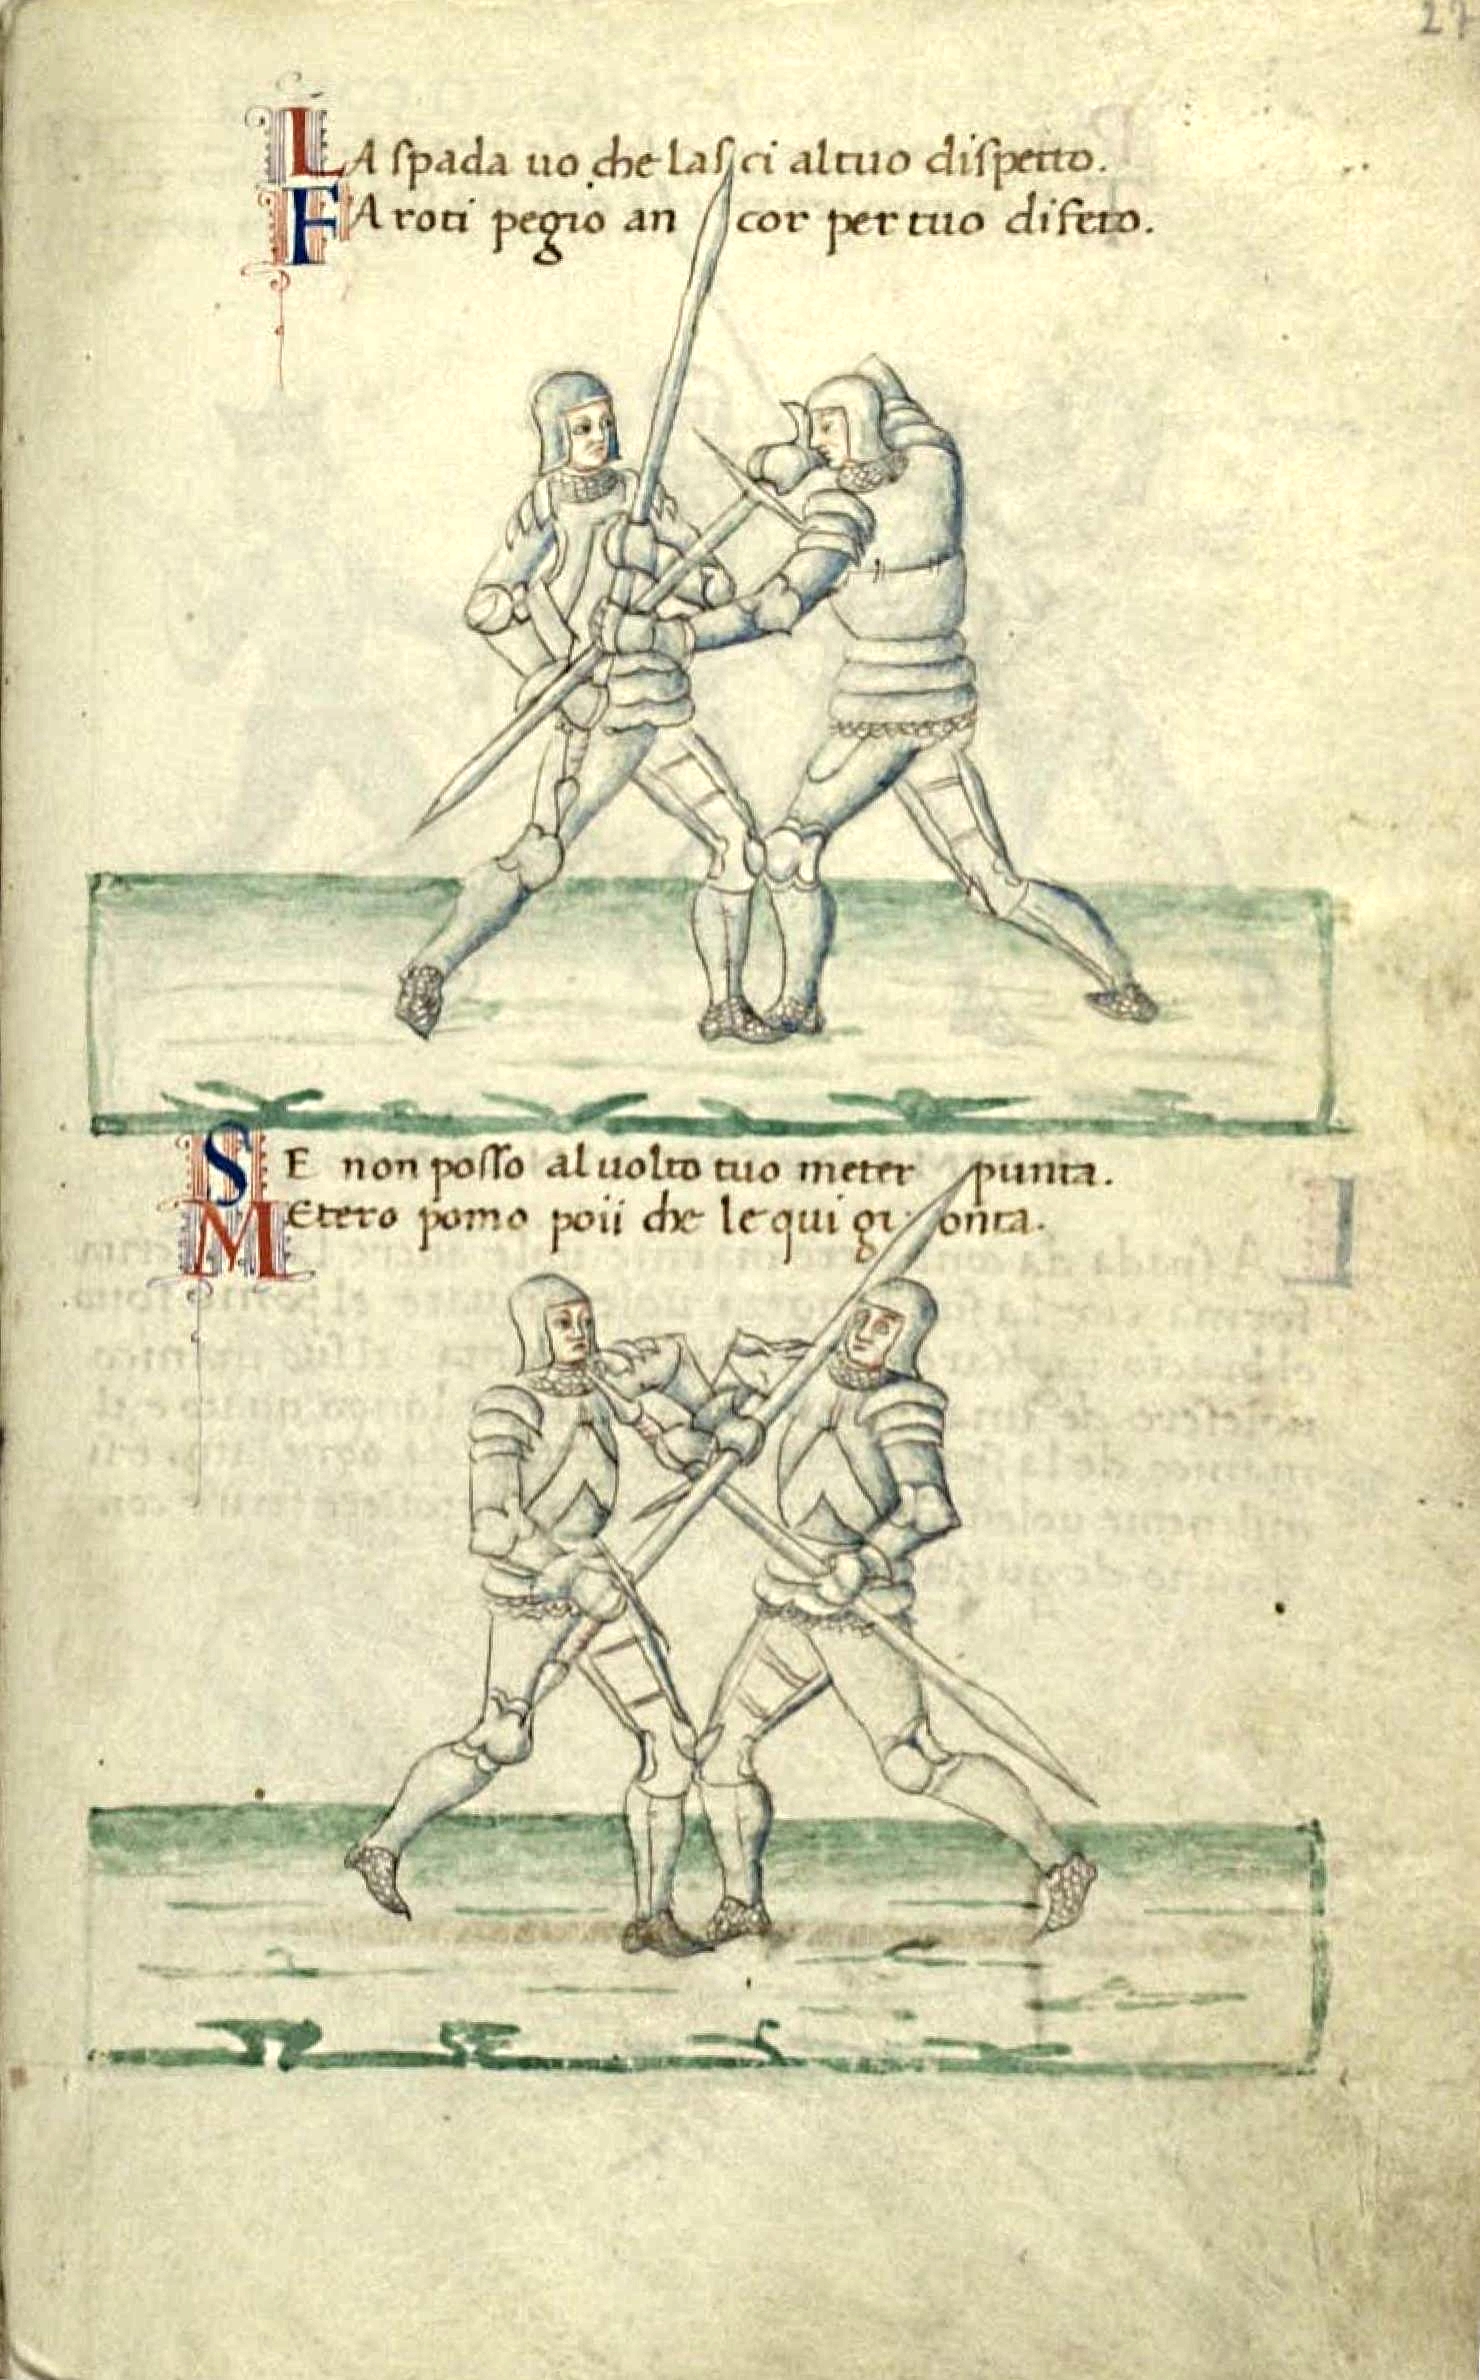 27
LA spada uo che lasci al tuo dispetto.
FAroti pegio an cor per tuo difeto.
SE non posso al uolto tuo meter punta.
MEtero pomo poii che le qui gionta.